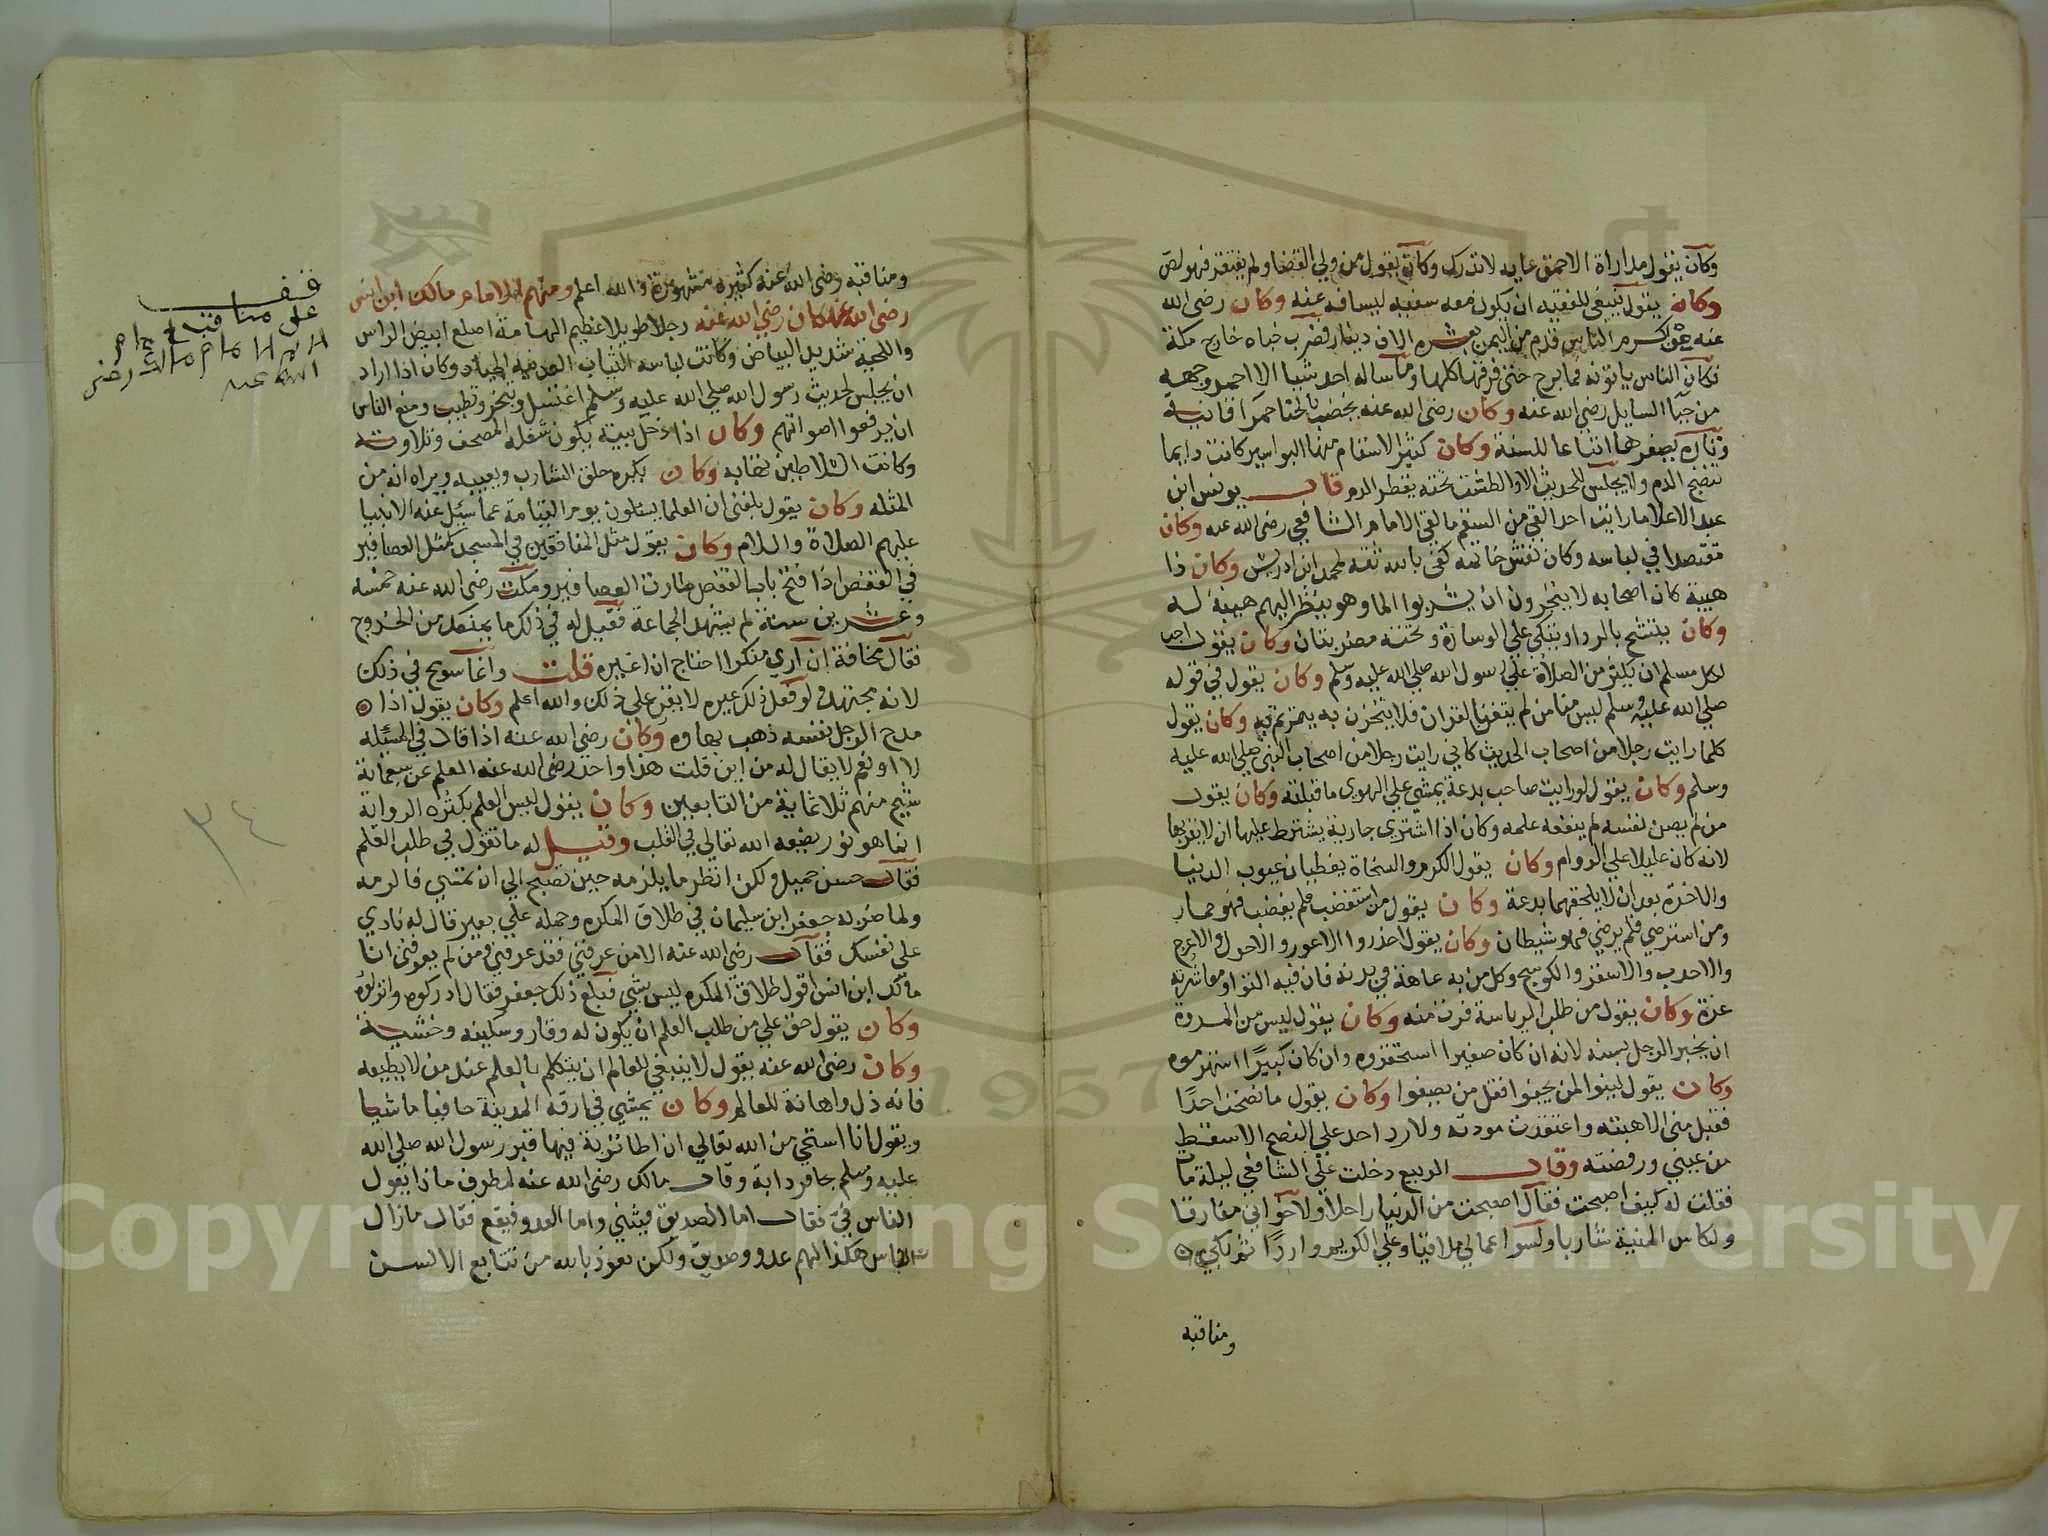 وكان يقول مداراة الاحمق غايه لاتدرك وكان يقول من ولي القضا ولم يفتقر فهو لص
وكان يقول ينبغي للفقيه ان يكون معه سفيه ليسافه عنه وكان رضي الله
عنه من اكرم الناس قدم من اليمن بعشره الاف دينار فضرب خباه خارج مكة
فكان الناس ياتونه فما برح حتى فرقها كلها وما ساله احد شيا الا احمر وجهه
من حيا السايل رضي الله عنه وكان رضي الله عنه يخضب بالحنا حمرا قانية
وتارة بصفرها اتباعا للسنة وكان كثير الاسقام منها البواسير كانت دايما
تنضح الدم ولا يجلس للحديث الا والطشت تحته يقطر الدم قال يونس ابن
عبد الاعلا ما رايت احدا لقي من السقم ما لقي الامام الشافعي رضي الله عنه وكان
مقتصدا في لباسه وكان نقش خاتمه كفى بالله ثقه لمحمد ابن ادريس وكان ذا
هيبة كان اصحابه لا يتجرون ان يشربوا الما وهو ينظر اليهم هيبة له
وكان يتشح بالردا ويتكي علي الوسادة وتحته مضربتان وكان يقول احب
لكل مسلم ان يكثر من الصلاة علي رسول الله صلي الله عليه وسلم وكان يقول في قوله
صلي الله عليه وسلم ليس منا من لم يتغن بالقران فلا يتحزن به يترنم به وكان يقول
كلما رايت رجلا من اصحاب الحديث كاني رايت رجلا من اصحاب النبي صلي الله عليه
وسلم وكان يقول لو رايت صاحب بدعة يمشي علي الهوي ما قبلته وكان يقول
من لم يصن نفسه لم ينفعه علمه وكان اذا اشتري جارية يشترط عليها ان لا يقربها
لانه كان عليلا علي الدوام وكان يقول الكرم والسخاة يغطيان عيوب الدنيا
والاخرة بعد ان لا يلحقهما بدعة وكان يقول من استغضب فلم يغضب فهو حمار
ومن استرضي فلم يرضي فهو شيطان وكان يقول احذروا الاعور والاحول والاعرج
والاحدب والاشقر والكوسج وكل من به عاهة في بدنه فان فيه التوا ومعاشرته
عزة وكان يقول من طلب الرياسة فرت منه وكان يقول ليس من المروة
ان يخبر الرجل بسنه لانه ان كان صغيرا استحقروه وان كان كبيرا استهرموه
وكان يقول لينوا لمن يجفوا فقل من يصفوا وكان يقول ما نصحت احدا
فقبل مني الا هبته واعتقدت مودته ولا رد احد علي النصح الا سقط
من عيني ورفضته وقال الربيع دخلت علي الشافعي ليلة مات
فقلت له كيف اصبحت فقال اصبحت من الدنيا راحلا ولاخواني مفارقا
ولكاس المنية شاربا ولسوا عمالي ملاقيا وعلي الكريم واردا ثم بكي
ومناقبه
ومناقبه رضي الله عنه كثيره مشهورة والله اعلم ومنهم الامام مالك ابن انس
رضي الله عنه كان رضي الله عنه رجلا طويلا عظيم الهامة اصلع ابيض الراس
واللحية شديد البياض وكانت لباسه الثياب العدنيه الجياد وكان اذا اراد
ان يجلس لحديث رسول الله صلي الله عليه وسلم اغتسل وتبخر وتطيب ومنع الناس
ان يرفعوا اصواتهم وكان اذا دخل بيته يكون شغله المصحف وتلاوته
وكانت السلاطين تهابه وكان يكره حلق الشارب ويعيبه ويراه انه من
المثله وكان يقول بلغني ان العلما يسئلون يوم القيامة عما سيل عنه الانبيا
عليهم الصلاة والسلام وكان يقول مثل المنافقين في المسجد كمثل العصافير
في القفص اذا فتح باب القفص طارت العصافير ومكث رضي الله عنه خمسه
وعشرين سنة لم يشهد الجماعة فقيل له في ذلك ما يمنعك من الخروج
فقال مخافة ان اري منكرا احتاج ان اغيره قلت وانما سومح في ذلك
لانه مجتهد ولو فعل ذلك غيره لا يقر علي ذلك والله اعلم وكان يقول اذا
مدح الرجل نفسه ذهب بهاوه وكان رضي الله عنه اذا قال في المسئله
لا او نعم لا يقال له من اين قلت هذا واخذ رضي الله عنه العلم عن تسعماية
شيخ منهم ثلاثماية من التابعين وكان يقول ليس العلم بكثره الرواية
انما هو نور يضعه الله تعالي في القلب وقيل له ما تقول في طلب العلم
فقال حسن جميل ولكن انظر ما يلزمه حين تصبح الي ان تمسي فالزمه
ولما ضربه جعفر ابن سليمان في طلاق المكره وحمله علي بعير قال له نادي
علي نفسك فقال رضي الله عنه الا من عرفني فقد عرفني ومن لم يعرفني انا
مالك ابن انس اقول طلاق المكره ليس بشي فبلغ ذلك جعفر فقال ادركوه وانزلوه
وكان يقول حق علي من طلب العلم ان يكون له وقار وسكينه وخشية
وكان رضي الله عنه يقول لا ينبغي للعالم ان يتكلم بالعلم عند من لا يطيعه
فانه ذل واهانة للعالم وكان يمشي في ازقة المدينة حافيا ماشيا
ويقول انا استحي من الله تعالي ان اطا تربة فيها قبر رسول الله صلي الله
عليه وسلم بحافر دابة وقال مالك رضي الله عنه لمطرف ماذا يقول
الناس في فقال اما الصديق فيثني واما العدو فيقع فقال مازال
الناس هكذا لهم عدو وصديق ولكن نعوذ بالله من تتابع الالسن
قف
على مناقب
الامام مالك رضي
الله عنه
٣٤
Copyright © King Saud University
1957